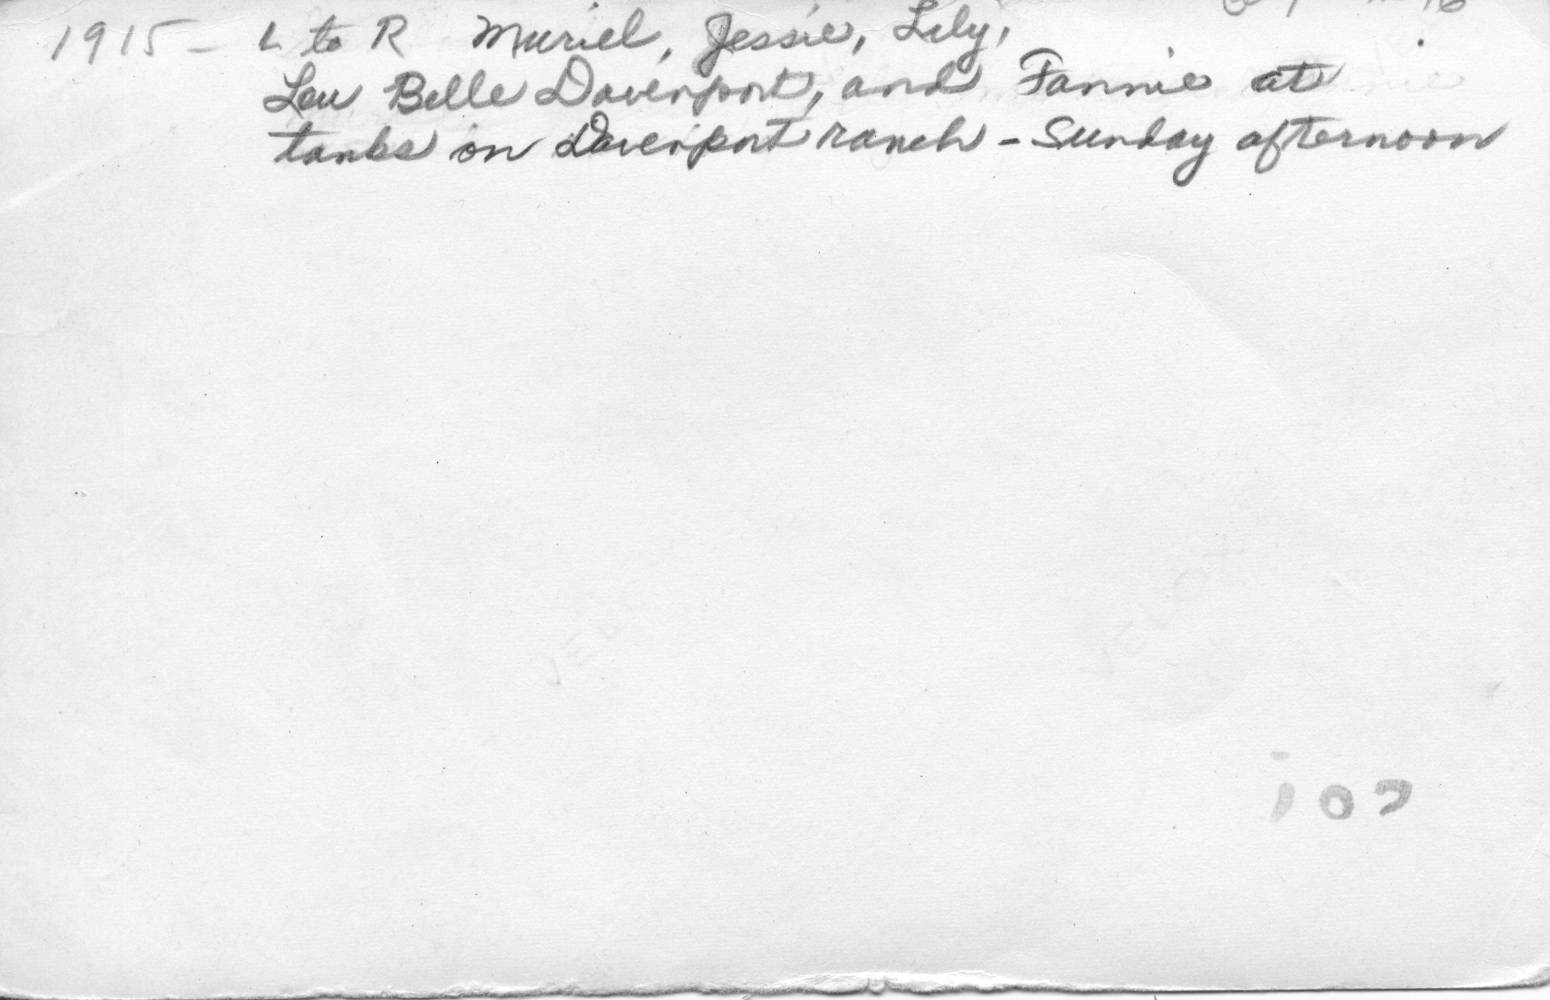 1915 - L to R Muriel, Jessie, Lily,
Lou Belle Davenport, and Fannie at
tanks on Davenport ranch - Sunday afternoon
102